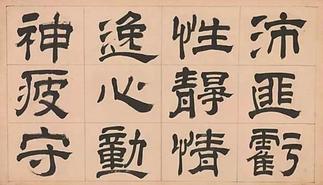 沛匪虧
性靜情
逸心動
神疲守